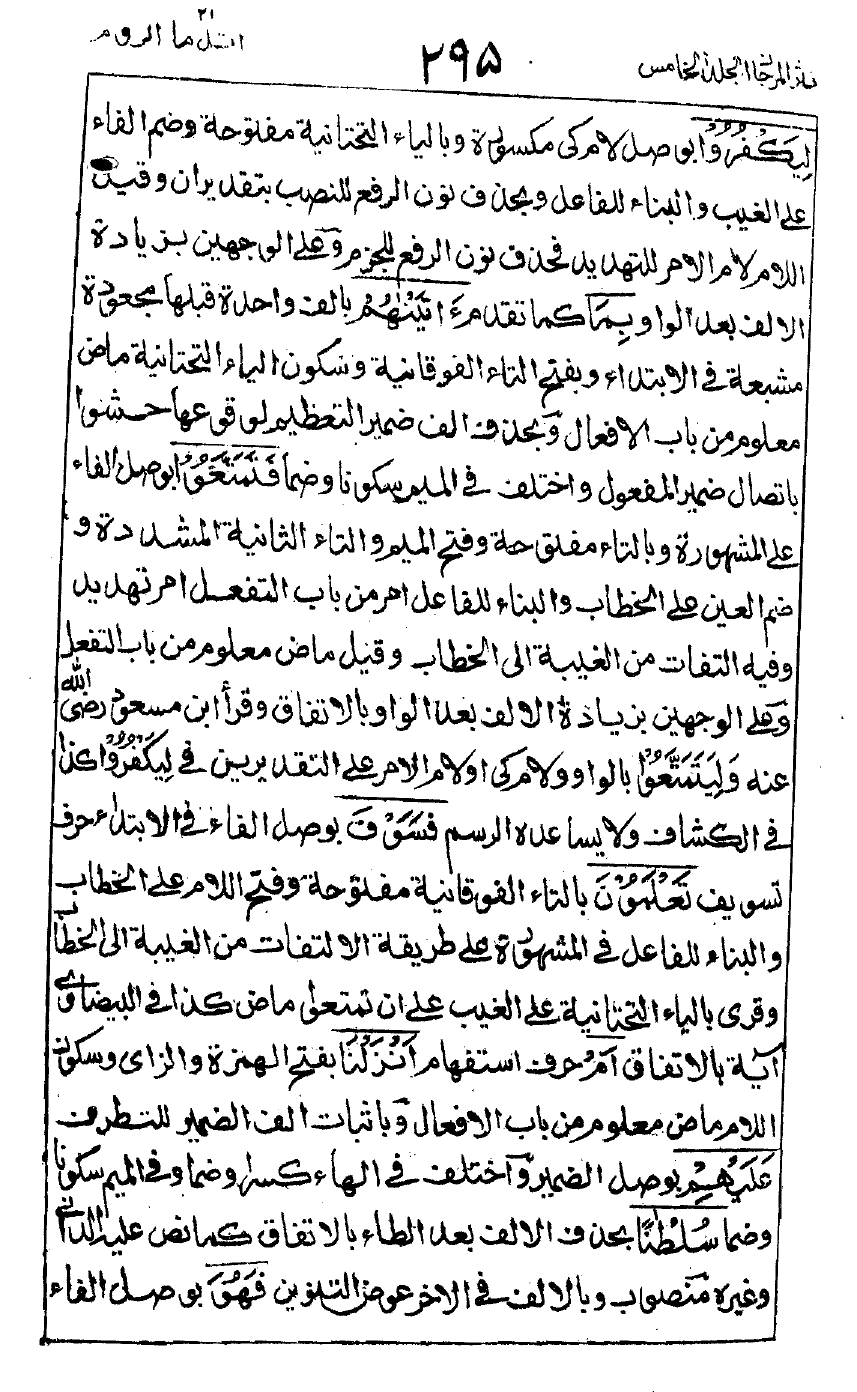 نثر المرجان الجلد الخامس
٢٩٥
اتل ما الروم
٢١
لِيَكْفُرُوْا بوصل لام كى مكسورة وبالياء التحتانية مفتوحة وضم الفاء
على الغيب والبناء للفاعل وبحذف نون الرفع للنصب بتقدير ان وقيل
اللام لام الامر للتهديد فحذف نون الرفع للجزم وعلى الوجهين بزيادة
الالف بعد الواو بِمَا كما تقدم ءَاتَيْنٰهُمْ بالف واحدة قبلها مجعودة
مشبعة في الابتداء وبفتح التاء الفوقانية وسكون الياء التحتانية ماض
معلوم من باب الافعال وبحذف الف ضمير التعظيم لوقوعها حشوا
باتصال ضمير المفعول واختلف في الميم سكونا وضما فَتَمَتَّعُوْا بوصل الفاء
على المشهورة وبالتاء مفتوحة وفتح الميم والتاء الثانية المشددة و
ضم العين على الخطاب والبناء للفاعل امر من باب التفعل امر تهديد
وفيه التفات من الغيبة الى الخطاب وقيل ماض معلوم من باب التفعل
وعلى الوجهين بزيادة الالف بعد الواو بالاتفاق وقرأ ابن مسعود رضى الله
عنه وَلِيَتَمَتَّعُوْا بالواو ولام كى او لام الامر على التقديرين في لِيَكْفُرُوْا كذا
في الكشاف ولا يساعده الرسم فَسَوْفَ بوصل الفاء في الابتداء حرف
تسويف تَعْلَمُوْنَ بالتاء الفوقانية مفتوحة وفتح اللام على الخطاب
والبناء للفاعل في المشهورة على طريقة الالتفات من الغيبة الى الخطاب
وقرى بالياء التحتانية على الغيب على ان تمتعوا ماض كذا في البيضاوى
آية بالاتفاق اَمْ حرف استفهام اَنْزَلْنَا بفتح الهمزة والزاى وسكون
اللام ماض معلوم من باب الافعال وباثبات الف الضمير للتطرف
عَلَيْهِمْ بوصل الضمير واختلف في الهاء كسرا وضما وفي الميم سكونا
وضما سُلْطٰنًا بحذف الالف بعد الطاء بالاتفاق كما نص عليه الدانى
وغيره منصوب وبالالف في الاخر عوض التنوين فَهُوَ بوصل الفاء